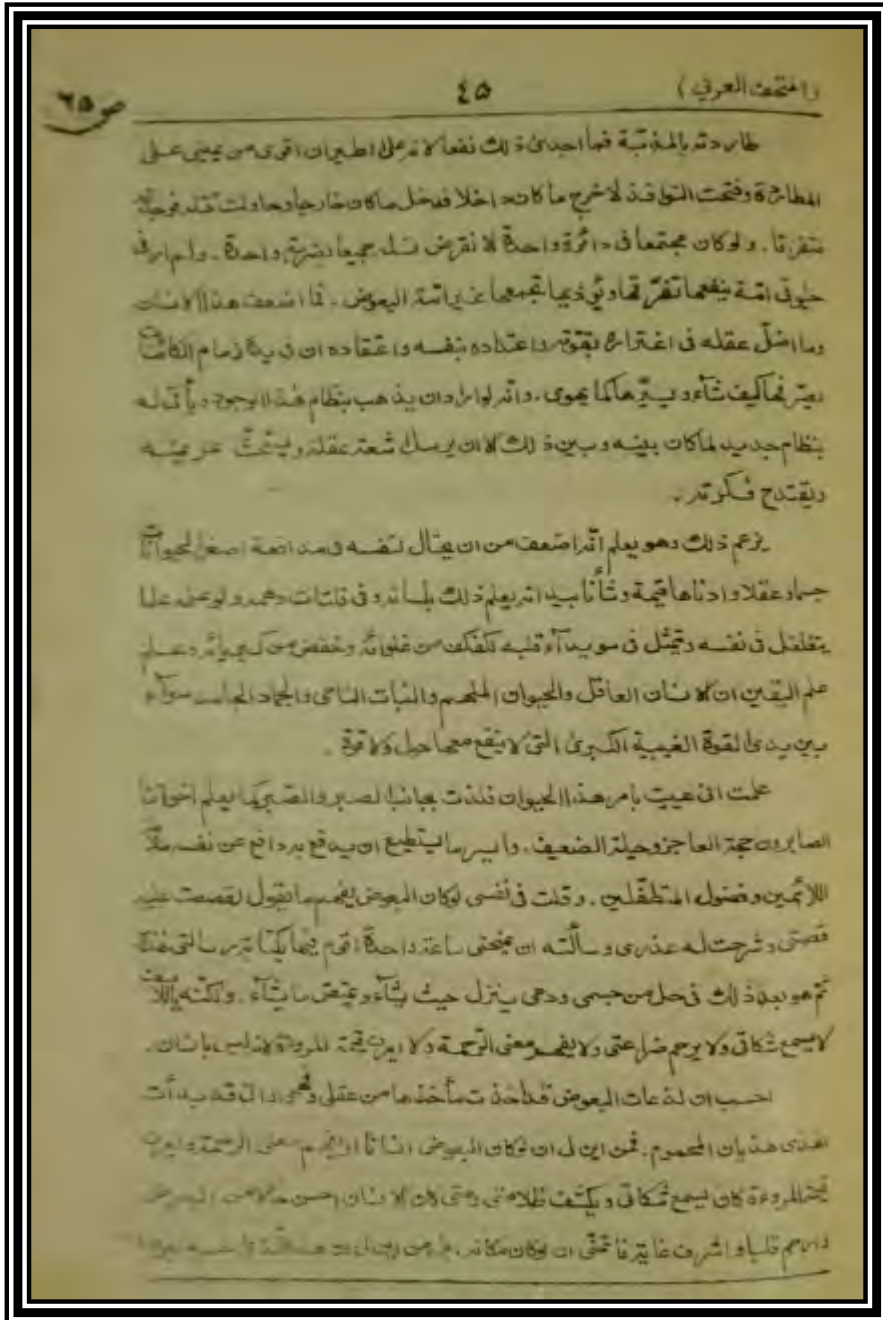 (المتحف العربي) ٤٥ ص ٦٥
طاردته بالمذبة فما اجدى ذلك نفعا لانه على الطيران اقوى من يميني على
المطاردة وفتحت النوافذ لاخرج ما كان داخلا فدخل ما كان خارجا وحاولت قتله فوجدته
متفرقا . ولو كان مجتمعا في دائرة واحدة لانقرض نسله جميعا بضربة واحدة . ولم ار في
حيوتي امة ينفعها تفرقها ويؤذيها تجمعها غير امة البعوض . فما اضعف هذا الانسان
وما اضل عقله في اغتراره بقوته واعتداده بنفسه واعتقاده ان في يده زمام الكائنات
يصرفها كيف شآء ويسيرها كما يهوى . وانه لو اراد ان يذهب بنظام هذا الوجود ويأتي له
بنظام جديد لما كان بينه وبين ذلك الا ان يرسل اشعة عقله ويستحث عزيمته
ويقتدح فكرته .
يزعم ذلك وهو يعلم انه اضعف من ان يحتال لنفسه في مدافعة اصغر الحيوانات
جسما وعقلا وادناها قيمة وشأنا بيد انه يعلم ذلك بلسانه وفي فلتات وهمه ولو علمه علما
يتغلغل في نفسه ويتمثل في سويدآء قلبه لكفكف من غلوائه وخفض من كبريائه وعلم
علم اليقين ان الانسان العاقل والحيوان الملهم والنبات النامي والجماد الجامد سوآء
بين يدى القوة الغيبية الكبرى التي لا ينفع معها حول ولا قوة .
علمت اني عييت بامر هذا الحيوان فلذت بجانب الصبر والصبر كما يعلم اخواننا
الصابرون حجة العاجز وحيلة الضعيف . وايسر ما يستطيع ان يدفع به دافع عن نفسه ملامة
اللائمين وفضول المتطفلين . وقلت في نفسي لو كان البعوض يفهم ما نقول لقصصت عليه
قصتى وشرحت له عذرى وسألته ان يمنحني ساعة واحدة اقوم فيها بكتابة رسالتي هذه
ثم هو بعد ذلك في حل من جسمى ودمى ينزل حيث يشآء ويمتص ما يشآء . ولكنه ياللاسف
لا يسمع شكاتي ولا يرحم ضراعتي ولا يفهم معنى الرحمة ولا يعرف قيمة المروءة لانه ليس بانسان .
احسب ان لذعات البعوض قد اخذت مأخذها من عقلى وفهمى واني قد بدأت
اهذى هذيان المحموم . فمن اين لي ان لو كان البعوض انسانا يفهم معنى الرحمة ويعرف
قيمة المروءة كان يسمع شكاتي ويكشف ظلامتي ومتى كان الانسان احسن حالا من البعوض
وارحم قلبا واشرف غاية فاتمنى ان لو كان مكانه .